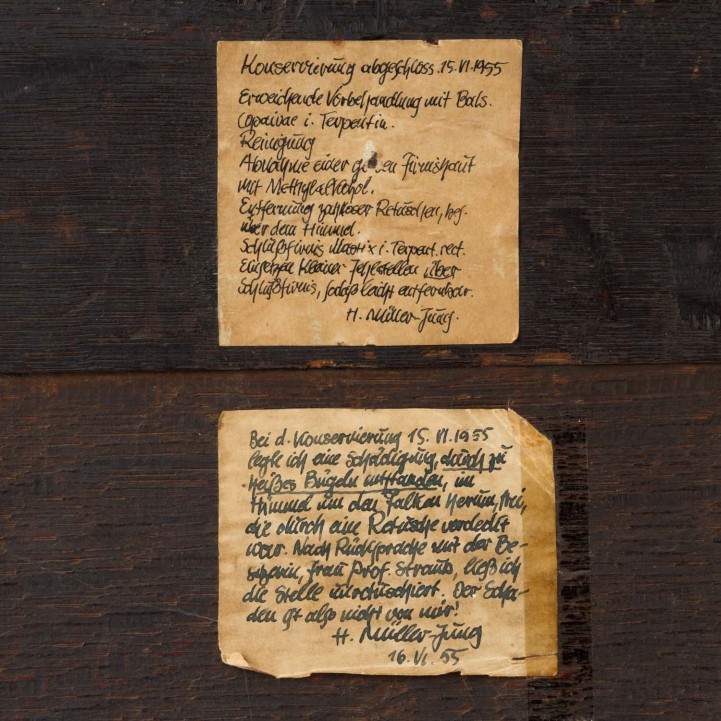 Konservierung abgeschloss. 15. VI. 1955
Erweichende Vorbehandlung mit Bals.
Copaivae i. Terpentin.
Reinigung
Abnahme einer Firnishaut
mit Methylalkohol.
Entfernung zahlloser Retuschen, bes.
über dem Himmel.
Schlußfirnis Mastix i. Terpent. rect.
Einsetzen kleiner Fehlstellen über
Schlußfirnis, sodaß leicht entfernbar.
H. Müller-Jung.
Bei d. Konservierung 15. VI. 1955
legte ich eine Schädigung, durch zu
heißes Bügeln entstanden, im
Himmel um den Falken herum, frei,
die durch eine Retusche verdeckt
war. Nach Rücksprache mit der Be-
sitzerin, Frau Prof. Straub, ließ ich
die Stelle unretuschiert. Der Scha-
den ist also nicht von mir!
H. Müller-Jung
16. VI. 55